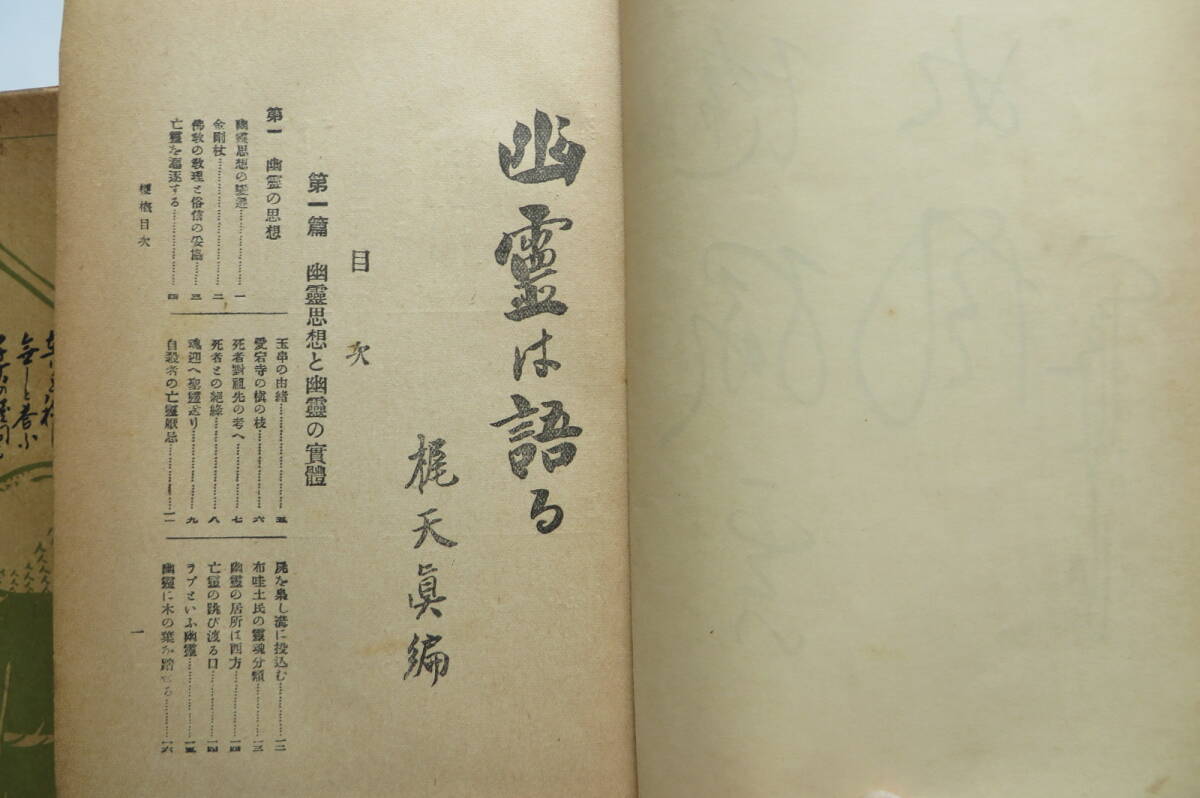 幽靈は語る
梶天眞編
目次
第一篇 幽靈思想と幽靈の實體
第一 幽靈の思想
幽靈思想の變遷………一
金剛杖………二
佛敎の敎理と俗信の妥協………三
亡靈を驅逐する………四
玉串の由緖………五
愛宕寺の槇の枝………六
死者對祖先の考へ………七
死者との絕緣………八
魂迎へ聖靈送り………九
自殺者の亡靈厭忌………一一
屍を梟し溝に投込む………一二
布哇土民の靈魂分類………一三
幽靈の居所は西方………一四
亡靈の跳び渡る口………一四
ラプといふ幽靈………一五
幽靈に木の葉を踏せる………一六
梗槪目次
一